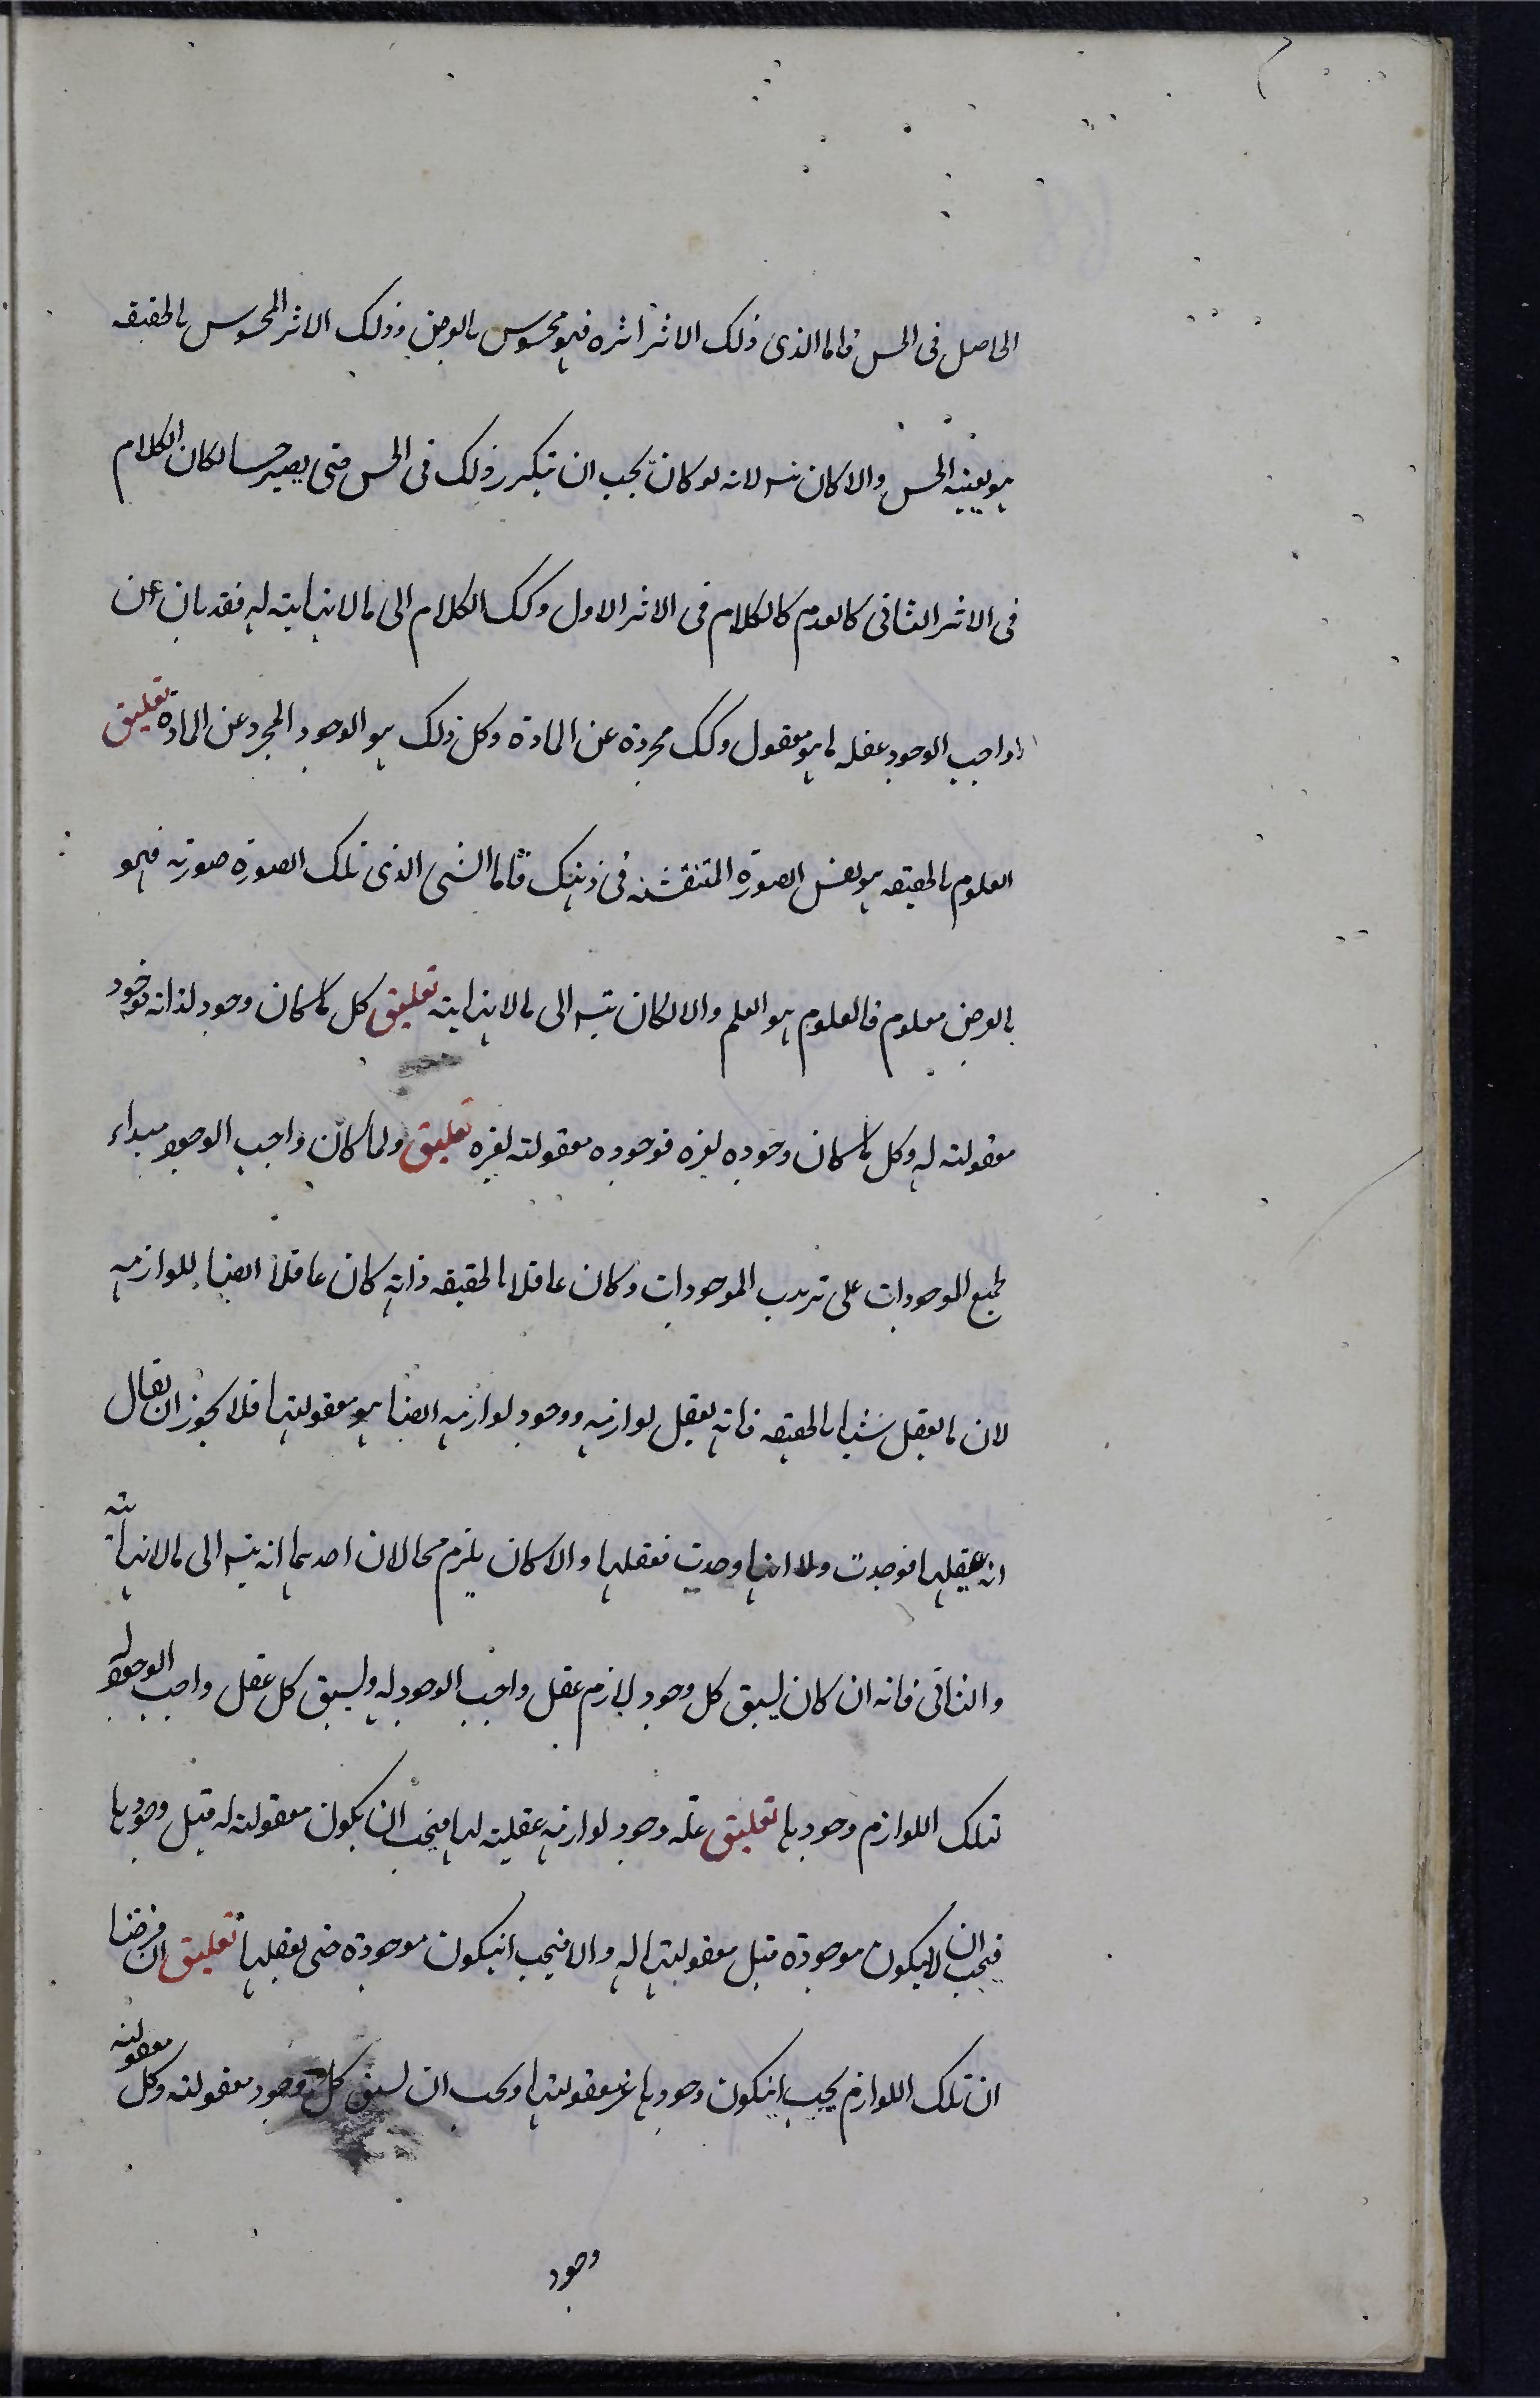 الحاصل فى الحس فاما الذى ذلك الاثر اثره فهو محسوس بالعرض وذلك الاثر المحسوس بالحقيقه
هو بعينه الحس والا كان يتسـ لانه لو كان يجب ان يتكرر ذلك فى الحس حتى يصير حسا لكان الكلام
فى الاثر الثانى كالعدم كالكلام فى الاثر الاول وكك الكلام الى مالا نهايته له فقد بان عن
واجب الوجود عقله ما هو معقول وكك مجردة عن المادة وكل ذلك هو الوجود المجرد عن المادة تعليق
العلوم بالحقيقه هو نفس الصورة المتنقشه فى ذهنك فاما الشى الذى تلك الصورة صورته فهو
بالعرض معلوم فالعلوم هو العلم والا لكان يتسـ الى مالا نهايته تعليق كل ما كان وجود لذاته فوجود
معقولته له وكل ما كان وجوده لغيره فوجوده معقولته لغيره تعليق ولما كان واجب الوجود مبداء
لجميع الموجودات على ترتيب الموجودات وكان عاقلا بالحقيقه ذاته كان عاقلا ايضا للوازمه
لان ما يعقل شيئا بالحقيقه فانه يعقل لوازمه ووجود لوازمه ايضا هو معقولتها فلا يجوز ان يقال
انه عقلها فوجدت ولا انها وجدت فعقلها والا كان يلزم محالان احدهما انه يتسـ الى مالا نهايته
والثانى فانه ان كان يسبق كل وجود لازم عقل واجب الوجود له ويسبق كل عقل واجب الوجود له
تلك اللوازم وجودها تعليق علة وجود لوازمه عقليته لها فيجب ان يكون معقولته له قبل وجودها
فيجب ان لا يكون موجودة قبل معقولتها له والا فيجب انيكون موجودة حتى يعقلها تعليق ان فرضنا
ان تلك اللوازم يجب انيكون وجودها غير معقولتها ويجب ان يسبق كل وجود معقولته وكل معقولته
وجود